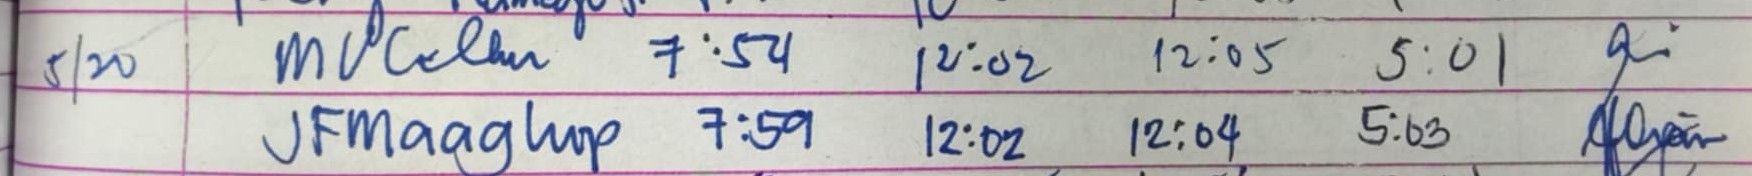 5/20 7:54 12:02 12:05 5:01
JFMaaghup 7:59 12:02 12:04 5:03